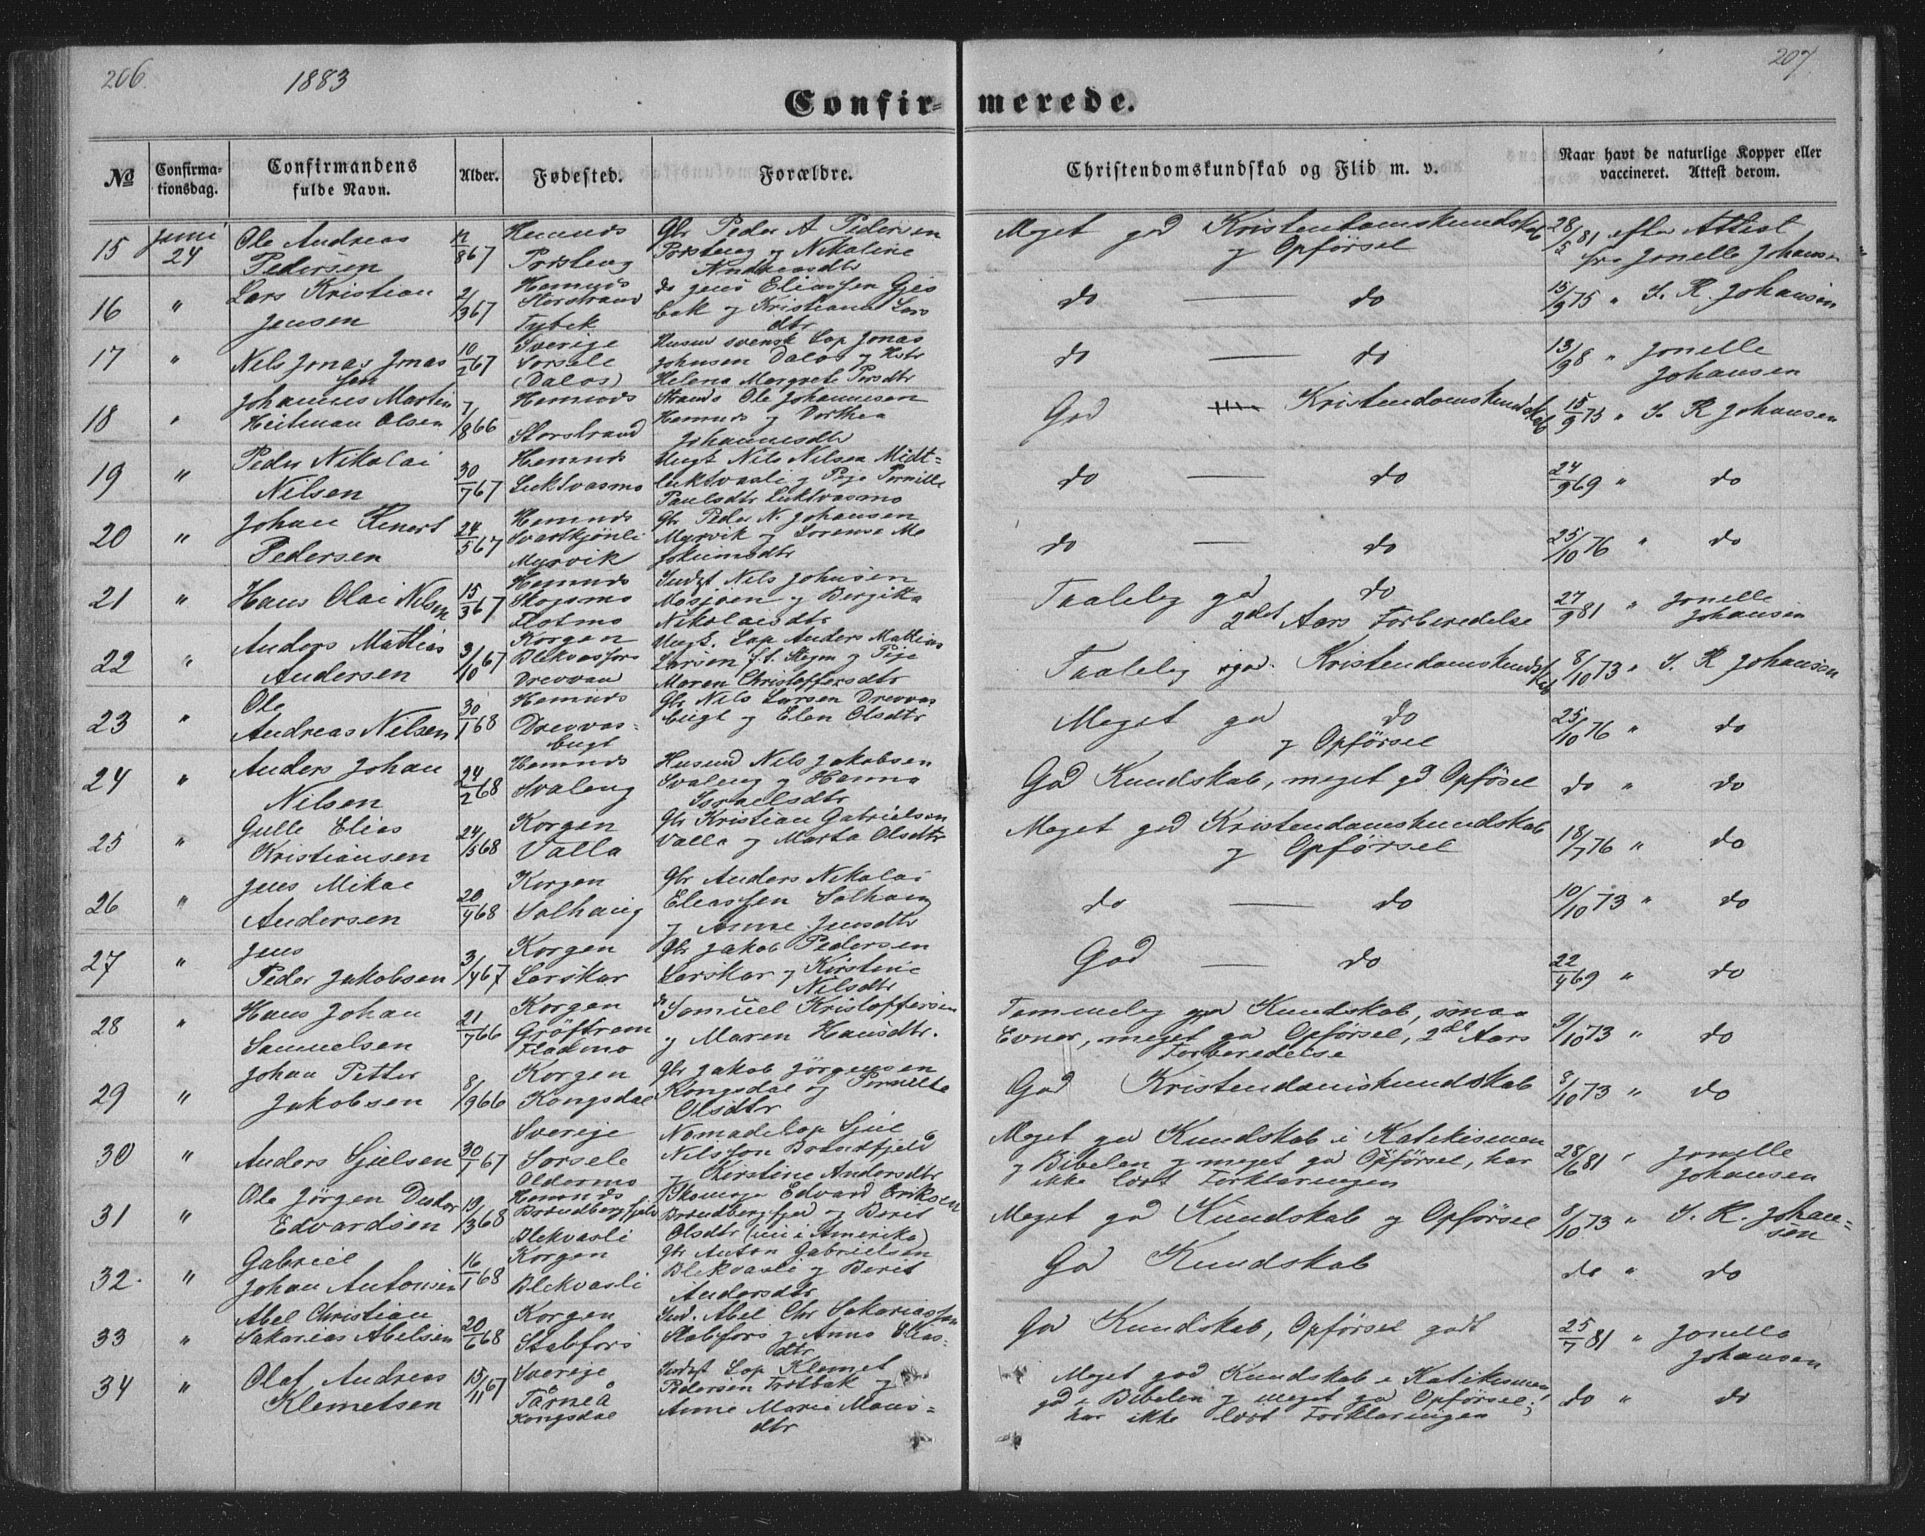 206.
1883
207.
Confir- merede.
No
Confirma-
tionsdag.
Confirmandens
fulde Navn.
Alder.
Fødested.
Forældre.
Christendomskundskab og Flid m. v.
Naar havt de naturlige Kopper eller
vaccineret. Attest derom.
15 Juni 24 Ole Andreas Pedersen 12/8 67 Hemnds Gbr Peder A Pedersen og Nikoline Andreasdtr Meget god Kristendomskundskab og Opførsel 28/5 81 efter Attest fra Jonelle Johansen
16 " Lars Kristian Jensen 2/3 67 Hemnds Storstrand do Jens Eliassen og Kristiana Lars dtr do — do 15/9 75 " S. R. Johansen
17 " Nils Jonas Jonas sen 10/2 67 Sverige Sorsele (Dalos) Husm svensk Lap Jonas Johnsen Dalos og Hstr Helena Margrete Persdtr do — do 13/9 8 " Jonelle Johansen
18 " Johannes Martin Heitman Olsen 7/8 66 Hemnds Storstrand Strands Ole Johannesen Hemnds og Dorthea Johannesdtr God Kristendomskundskab 15/9 75 " S. R Johansen
19 " Peder Nikolai Nilsen 30/7 67 Hemnds Luktvasmo Ungk Nils Nilsen Midt= luktvasli og Pige Pernille Paulsdtr Luktvasmo do — do 24/9 69 " do
20 " Johan Renert Pedersen 24/5 67 Hemnds Svartkjønli Myrvik Gbr Peder N. Johansen Myrvik og Lorensa Jokumsdtr do — do 25/10 76 " do
21 " Hans Olai Nilsen 15/3 67 Hemnds Skogsmo Indst Nils Johnsen Mosjøen og Bergitta Nikolaisdtr Taalelig gd do 2det Aars Forberedelse 27/9 81 " Jonelle Johansen
22 " Anders Mathias Andersen 3/10 67 Korgen Blekvasfors Drevvan Ungk. Lap Anders Mathias Larsen og Pige Maren Christoffersdtr Taalelig god Kristendomskundskab 8/10 73 " S. R Johansen
23 " Ole Andreas Nilsen 30/1 68 Hemnds Drevvas- bugt Gbr Nils Larsen Drevvas bugt og Elen Olsdtr Meget gd do og Opførsel 25/10 76 " do
24 " Anders Johan Nilsen 24/2 68 Hemnds Svaleng Husmd Nils Jakobsen Svaleng og Hanna Israelsdtr God Kundskab, meget gd Opførsel do " do
25 " Gulle Elias Kristiansen 24/5 68 Korgen Valla Gbr Kristian Gabrielsen Valla og Marta Olsdtr Meget god Kristendomskundskab og Opførsel 18/7 76 " do
26 " Jens Mikae Andersen 20/4 68 Korgen Solhaug Gbr Anders Nikolai Eliassen Solhaug og Anne Jensdtr do — do 10/10 73 " do
27 " Jens Peder Jakobsen 3/4 67 Korgen Lerskar Gbr Jakob Pedersen Lerskar og Kirstine Nilsdtr God — do 22/4 69 " do
28 " Hans Johan Samuelsen 21/7 66 Korgen Grøftrem Fladmo Samuel Kristoffersen og Maren Hansdtr. Temmelig god Kundskab, smaa Evner, meget gd Opførsel, 2det Aars Forberedelse 9/10 73 " do
29 " Johan Petter Jakobsen 8/9 66 Korgen Kongsdal Gbr Jakob Jørgensen Kongsdal og Pernille Olsdtr God Kristendomskundskab 8/10 73 " do
30 " Anders Sjulsen 30/7 67 Sverige Sorsele Oldermo Nomadelap Sjul Nilsson Brandfjeld og Kirstine Andersdtr Meget gd Kundskab i Katekismen og Bibelen og meget gd Opførsel, har ikke lært Forklaringen 28/6 81 " Jonelle Johansen
31 " Ole Jørgen Edvardsen 19/3 68 Hemnds Brandbergfjeld Blekvasli Skomager Edvard Eriksen Brandbergfjed og Berit Olsdtr (nu i Amerika) Meget gd Kundskab og Opførsel 8/10 73 " S. R. Johan= sen
32. " Gabriel Johan Antonsen 16/1 68 Korgen Blekvasli Gbr Anton Gabrielsen Blekvasli og Berit Andersdtr Gd Kundskab do " do
33 " Abel Christian Sakarias Abelsen 20/6 68 Korgen Stabfors Ind. Abel Chr Sakariassen Stabfors og Anne Elias- dtr Gd Kundskab, Opførsel godt 25/7 81 " Jonelle Johansen
34 " Olaf Andreas Klemetsen 15/11 67 Sverige Tärneå Kongsdal Indst Lap Klemet Pedersen Frotbak og Anne Marie Mons= dtr Meget god Kundskab i Katekismen, gd i Bibelen og meget gd Opførsel, har ikke lært Forklaringen do " do